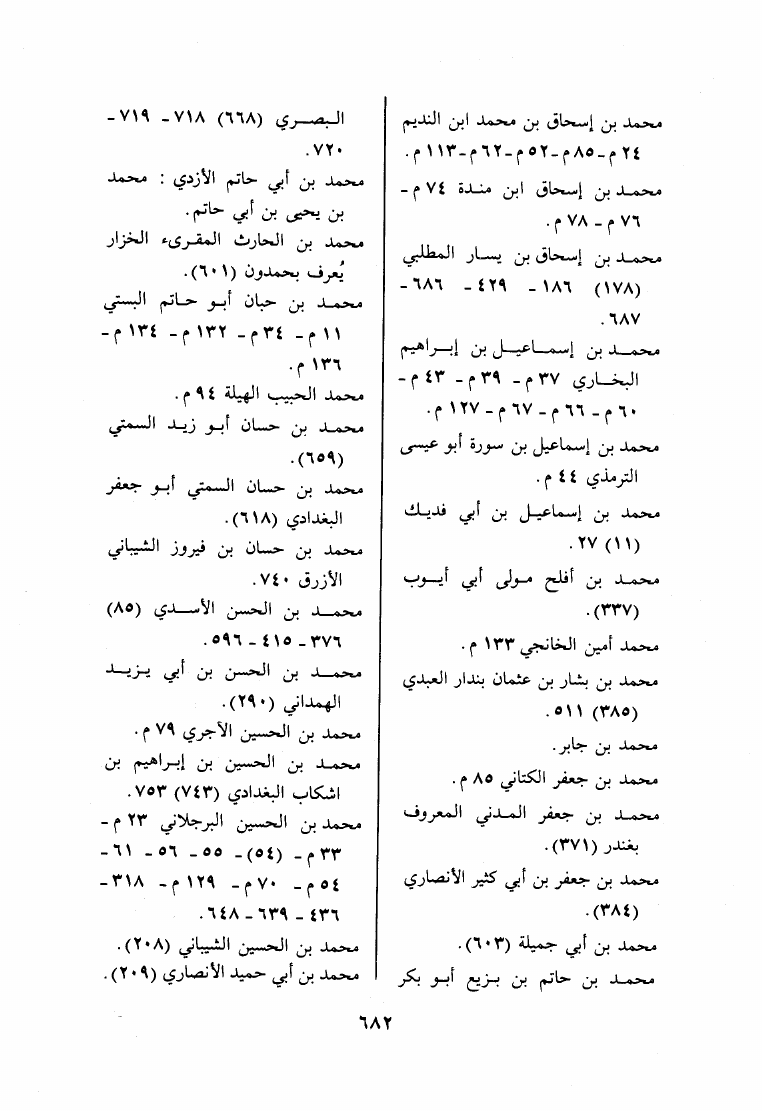 محمد بن إسحاق بن محمد ابن النديم
٢٤ م-٨٥ م-٥٢ م-٦٢ م-١١٣ م.
محمد بن إسحاق ابن مندة ٧٤ م-
٧٦ م - ٧٨ م.
محمد بن إسحاق بن يسار المطلبي
(١٧٨) ١٨٦ - ٤٢٩ - ٦٨٦-
٦٨٧.
محمد بن إسماعيل بن إبراهيم
البخاري ٣٧ م - ٣٩ م - ٤٣ م -
٦٠ م - ٦٦ م - ٦٧ م - ١٢٧ م.
محمد بن إسماعيل بن سورة أبو عيسى
الترمذي ٤٤ م.
محمد بن إسماعيل بن أبي فديك
(١١) ٢٧.
محمد بن أفلح مولى أبي أيوب
(٣٣٧).
محمد أمين الخانجي ١٣٣ م.
محمد بن بشار بن عثمان بندار العبدي
(٣٨٥) ٥١١.
محمد بن جابر.
محمد بن جعفر الكتاني ٨٥ م.
محمد بن جعفر المدني المعروف
بغندر (٣٧١).
محمد بن جعفر بن أبي كثير الأنصاري
(٣٨٤).
محمد بن أبي جميلة (٦٠٣).
محمد بن حاتم بن بزيع أبو بكر
البصري (٦٦٨) ٧١٨ - ٧١٩ -
٧٢٠.
محمد بن أبي حاتم الأزدي : محمد
بن يحيى بن أبي حاتم.
محمد بن الحارث المقرىء الخزار
يُعرف بحمدون (٦٠١).
محمد بن حبان أبو حاتم البستي
١١ م - ٣٤ م - ١٣٢ م - ١٣٤ م -
١٣٦ م.
محمد الحبيب الهيلة ٩٤ م.
محمد بن حسان أبو زيد السمتي
(٦٥٩).
محمد بن حسان السمتي أبو جعفر
البغدادي (٦١٨).
محمد بن حسان بن فيروز الشيباني
الأزرق ٧٤٠.
محمد بن الحسن الأسدي (٨٥)
٣٧٦ - ٤١٥ - ٥٩٦.
محمد بن الحسن بن أبي يزيد
الهمداني (٢٩٠).
محمد بن الحسين الآجري ٧٩ م.
محمد بن الحسين بن إبراهيم بن
اشكاب البغدادي (٧٤٣) ٧٥٣.
محمد بن الحسين البرجلاني ٢٣ م -
٣٣ م - (٥٤)- ٥٥ - ٥٦ - ٦١ -
٥٤ م - ٧٠ م - ١٢٩ م - ٣١٨-
٤٣٦ - ٦٣٩ - ٦٤٨.
محمد بن الحسين الشيباني (٢٠٨).
محمد بن أبي حميد الأنصاري (٢٠٩).
٦٨٢